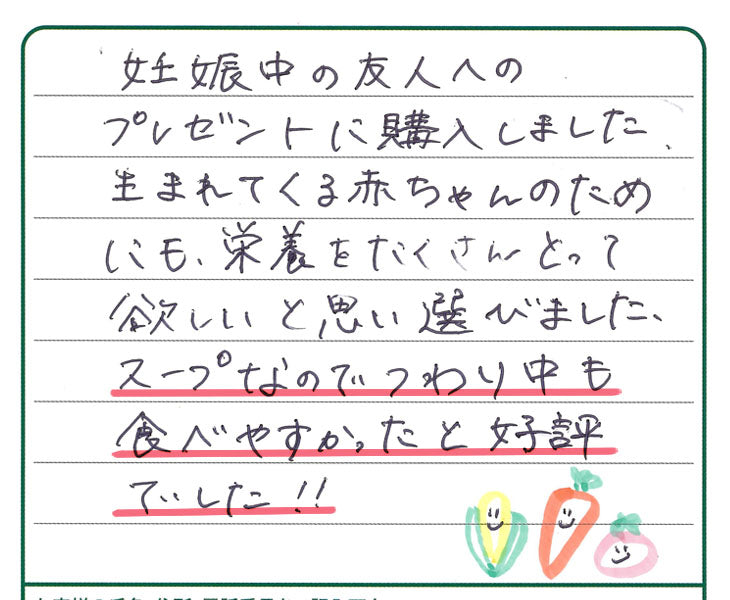 妊娠中の友人への
プレゼントに購入しました、
生まれてくる赤ちゃんのため
にも、栄養をたくさんとって
欲しいと思い選びました、
スープなのでつわり中も
食べやすかったと好評
でした!!